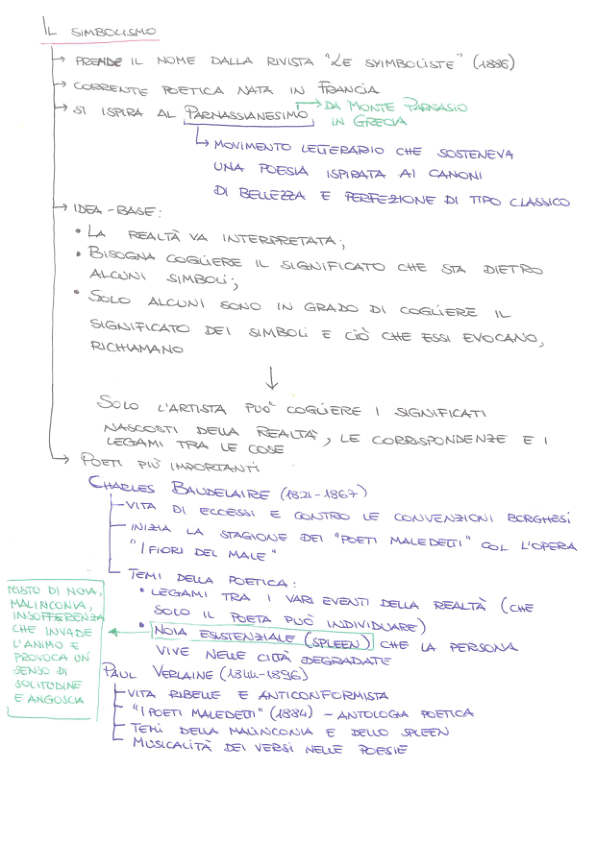 IL SIMBOLISMO
→ PRENDE IL NOME DALLA RIVISTA "LE SYIMBOLISTE" (1886)
→ CORRENTE POETICA NATA IN FRANCIA
→ SI ISPIRA AL PARNASSIANESIMO → DA MONTE PARNASIO
IN GRECIA
→ MOVIMENTO LETTERARIO CHE SOSTENEVA
UNA POESIA ISPIRATA AI CANONI
DI BELLEZZA E PERFEZIONE DI TIPO CLASSICO
→ IDEA-BASE:
• LA REALTÀ VA INTERPRETATA;
• BISOGNA COGLIERE IL SIGNIFICATO CHE STA DIETRO
ALCUNI SIMBOLI;
• SOLO ALCUNI SONO IN GRADO DI COGLIERE IL
SIGNIFICATO DEI SIMBOLI E CIÒ CHE ESSI EVOCANO,
RICHIAMANO
↓
SOLO L'ARTISTA PUÒ COGLIERE I SIGNIFICATI
NASCOSTI DELLA REALTÀ, LE CORRISPONDENZE E I
LEGAMI TRA LE COSE
→ POETI PIÙ IMPORTANTI
CHARLES BAUDELAIRE (1821-1867)
VITA DI ECCESSI E CONTRO LE CONVENZIONI BORGHESI
INIZIA LA STAGIONE DEI "POETI MALEDETTI" COL L'OPERA
"I FIORI DEL MALE"
TEMI DELLA POETICA:
• LEGAMI TRA I VARI EVENTI DELLA REALTÀ (CHE
SOLO IL POETA PUÒ INDIVIDUARE)
• NOIA ESISTENZIALE (SPLEEN) CHE LA PERSONA
VIVE NELLE CITTÀ DEGRADATE
MISTO DI NOIA,
MALINCONIA,
INSOFFERENZA
CHE INVADE
L'ANIMO E
PROVOCA UN
SENSO DI
SOLITUDINE
E ANGOSCIA
PAUL VERLAINE (1844-1896)
VITA RIBELLE E ANTICONFORMISTA
"I POETI MALEDETTI" (1884) - ANTOLOGIA POETICA
TEMI DELLA MALINCONIA E DELLO SPLEEN
MUSICALITÀ DEI VERSI NELLE POESIE